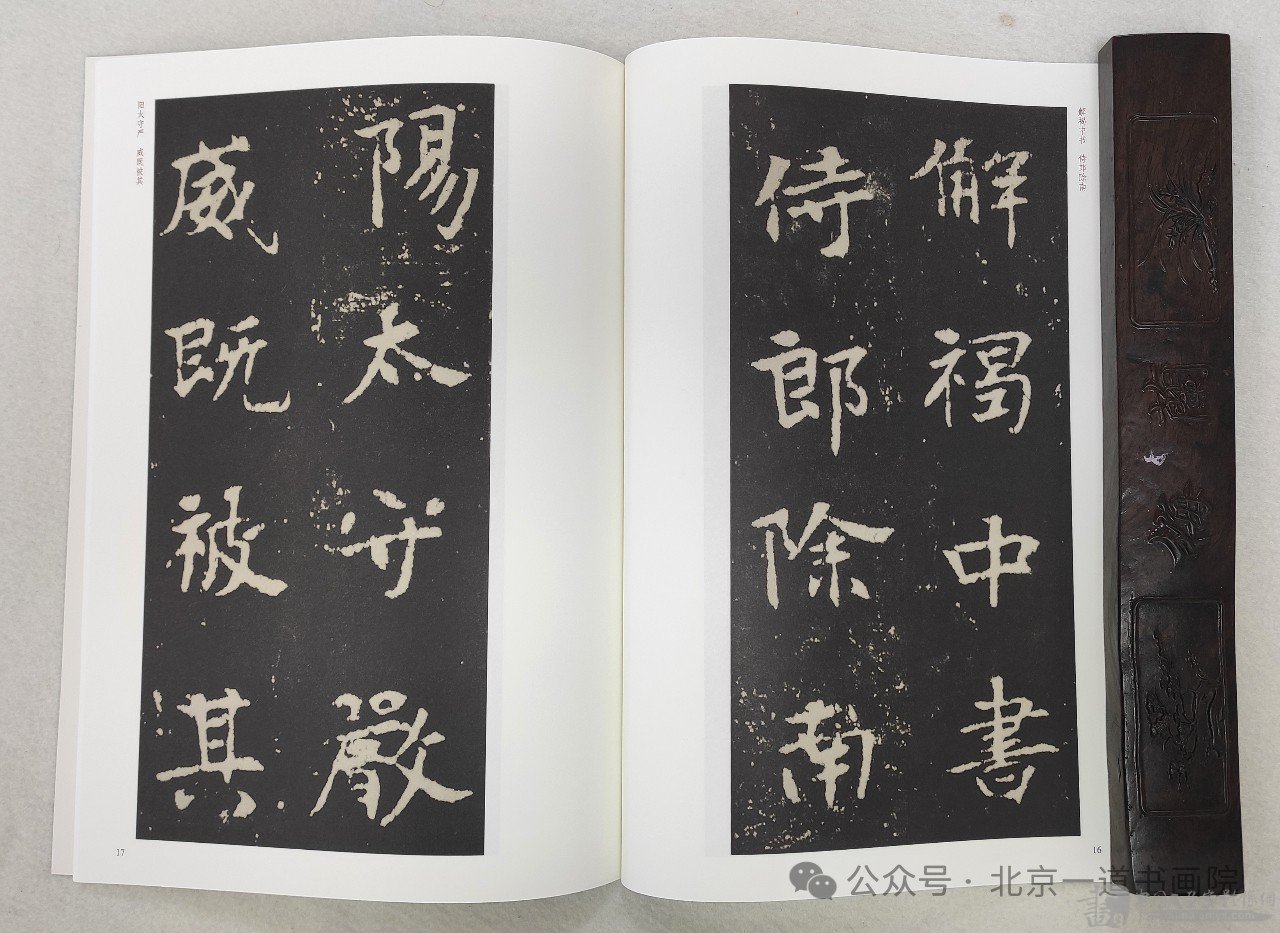 解褐中书 侍郎除南
觧褐中書
侍郎除南
16
陽太守嚴
威既被其
阳太守严 威既被其
17
公众号 · 北京一道书画院